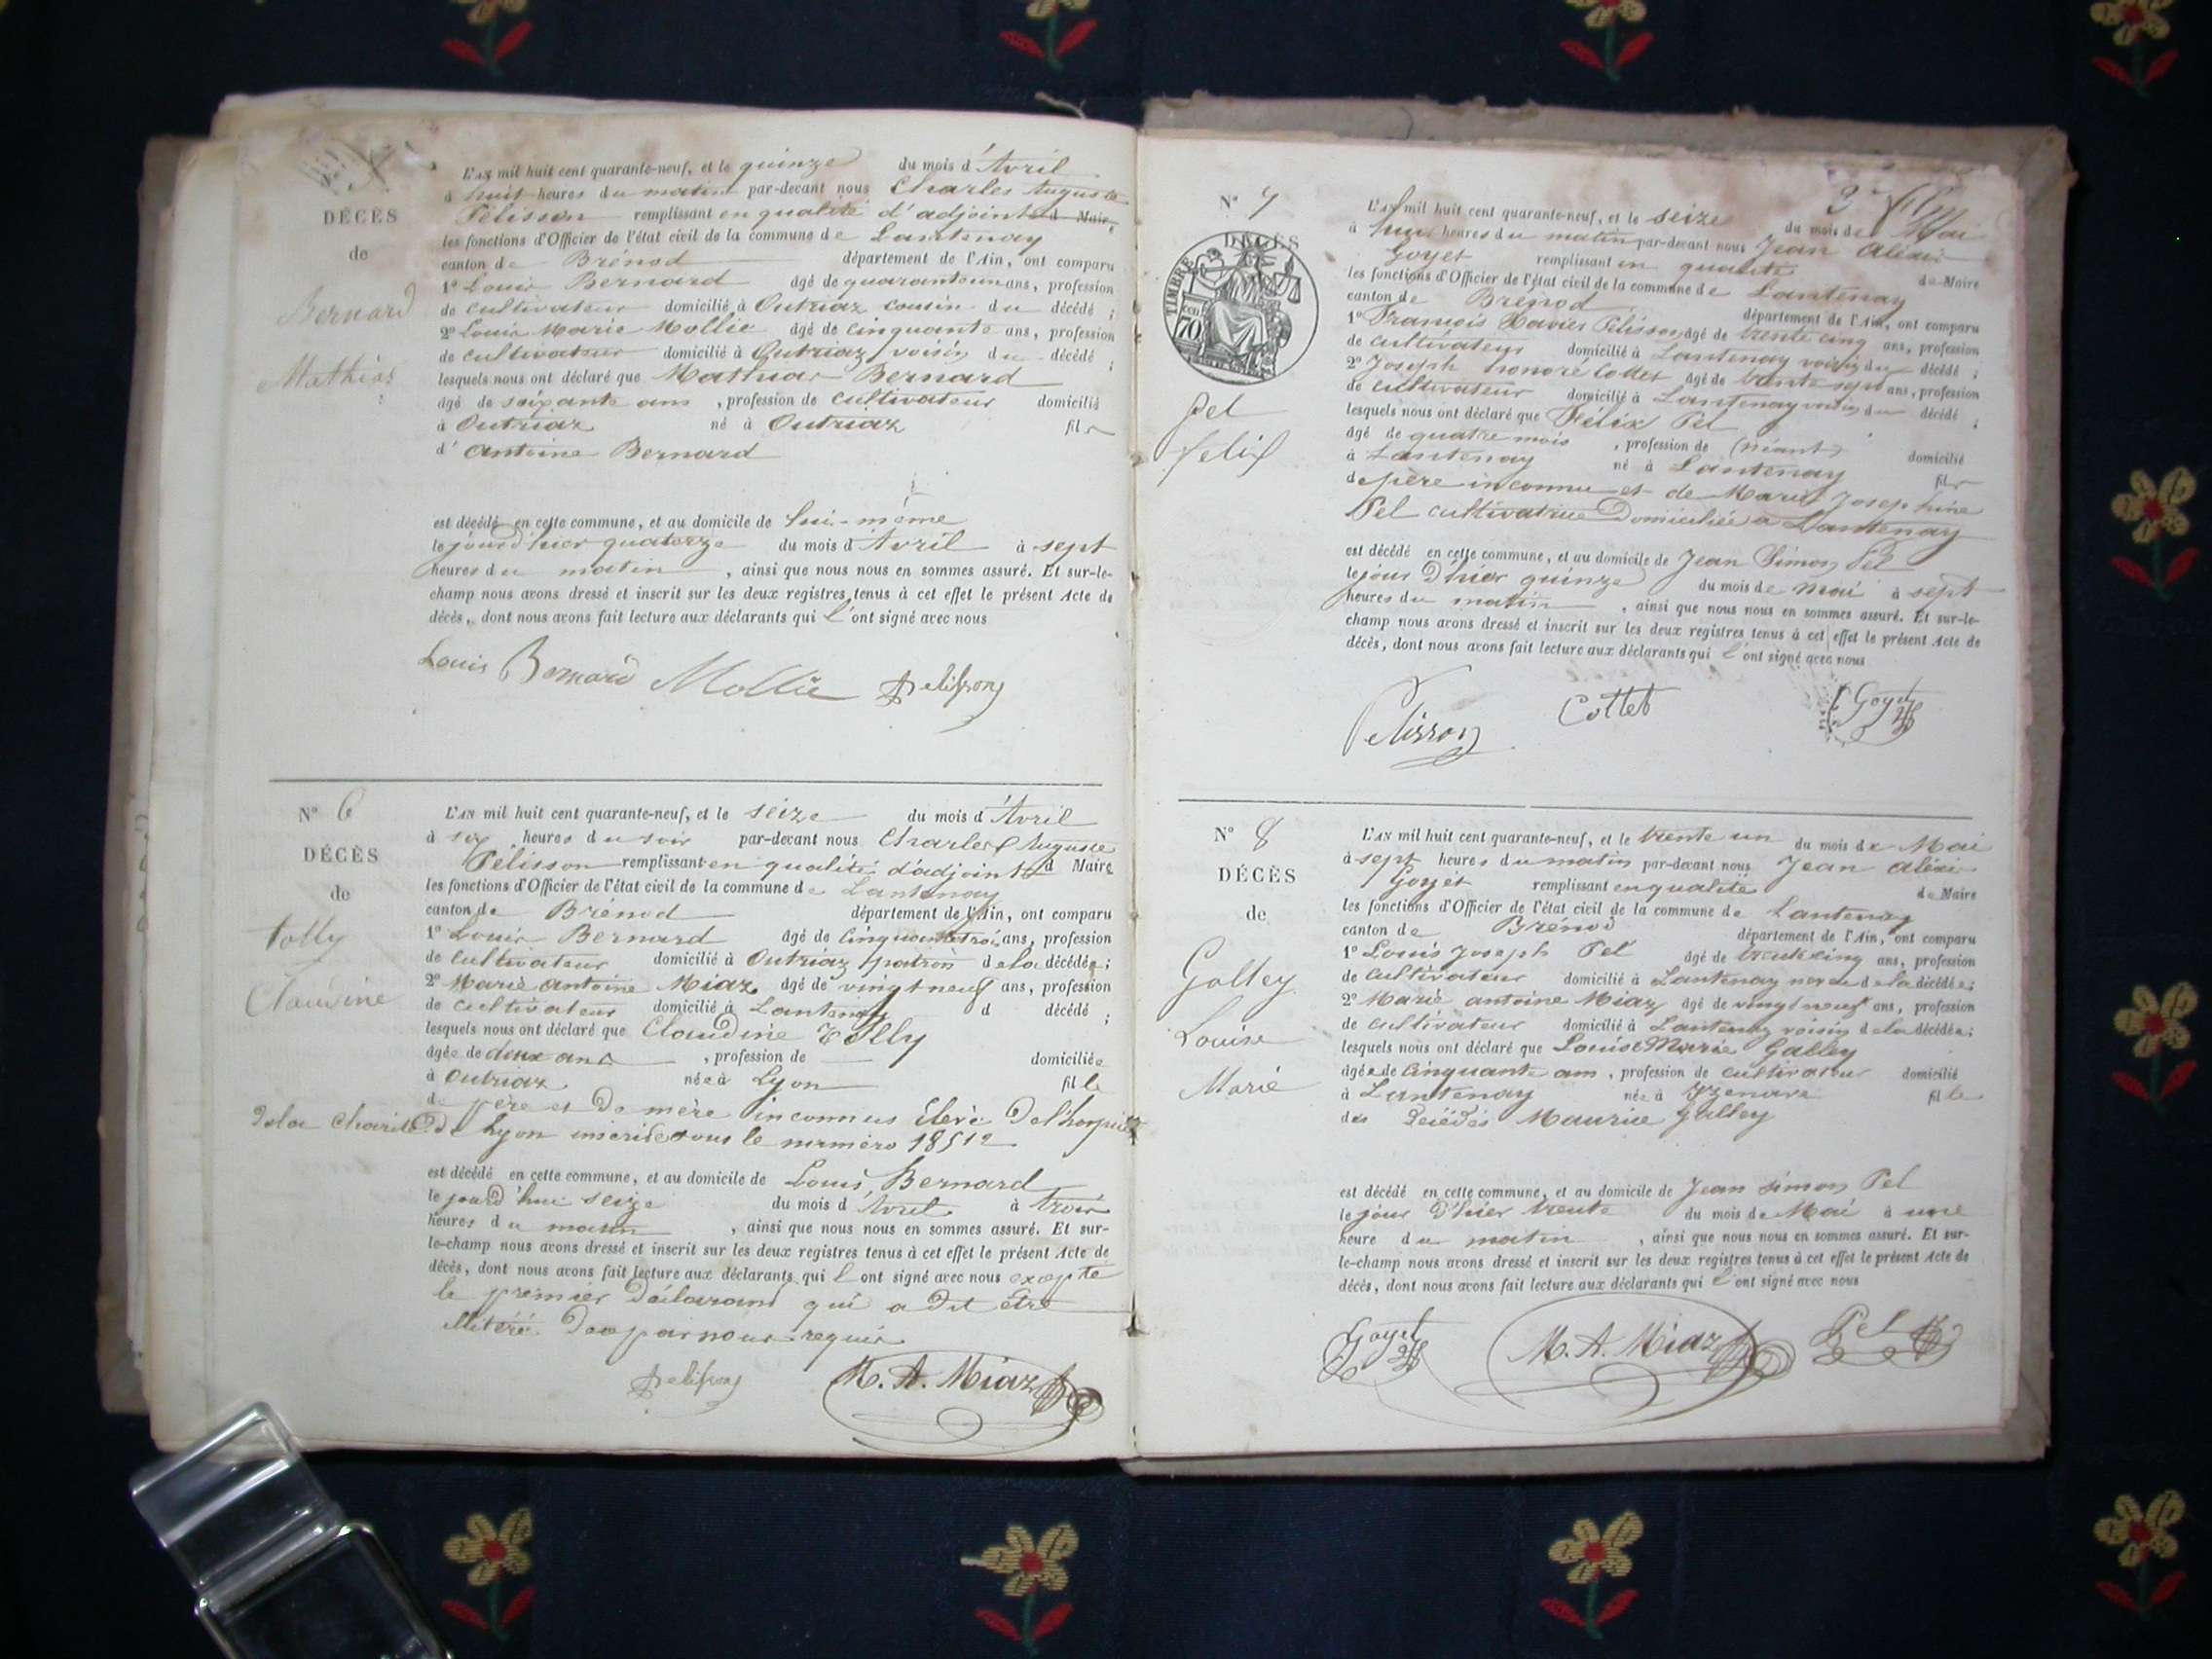 DÉCÈS
de
Bernard
Mathias
L'AN mil huit cent quarante-neuf, et le quinze du mois d'Avril
à huit heures du matin par-devant nous Charles Auguste
Pélisson remplissant en qualité d'adjoint d Maire
les fonctions d'Officier de l'état civil de la commune de Lantenay
canton de Brénod département de l'Ain, ont comparu
1° Louis Bernard âgé de quarante un ans, profession
de cultivateur domicilié à Outriaz cousin du décédé ;
2° Louis Marie Mollie âgé de cinquante ans, profession
de cultivateur domicilié à Outriaz voisin du décédé ;
lesquels nous ont déclaré que Mathias Bernard
âgé de soixante ans , profession de cultivateur domicilié
à Outriaz né à Outriaz fils
d' Antoine Bernard
est décédé en cette commune, et au domicile de lui-même
le jour d'hier quatorze du mois d'Avril à sept
heures du matin , ainsi que nous nous en sommes assuré. Et sur-le-
champ nous avons dressé et inscrit sur les deux registres tenus à cet effet le présent Acte de
décès, dont nous avons fait lecture aux déclarants qui l'ont signé avec nous
Louis Bernard Mollie Pelisson
N° 6
DÉCÈS
de
Tolly
Claudine
L'AN mil huit cent quarante-neuf, et le seize du mois d'Avril
à six heures du soir par-devant nous Charles Auguste
Pelisson remplissant en qualité d'adjoint d Maire
les fonctions d'Officier de l'état civil de la commune de Lantenay
canton de Brénod département de l'Ain, ont comparu
1° Louis Bernard âgé de cinquante trois ans, profession
de cultivateur domicilié à Outriaz patron de la décédée ;
2° Marie Antoine Miaz âgé de vingt neuf ans, profession
de cultivateur domicilié à Lantenay d décédé ;
lesquels nous ont déclaré que Claudine Tolly
âgée de deux ans , profession de domiciliée
à Outriaz née à Lyon fille
de père et de mère inconnus Elevé de l'hospice
de la Charité de Lyon inscrite sous le numéro 18512
est décédé en cette commune, et au domicile de Louis Bernard
le jourd'hui seize du mois d'Avril à trois
heures du matin , ainsi que nous nous en sommes assuré. Et sur-
le-champ nous avons dressé et inscrit sur les deux registres tenus à cet effet le présent Acte de
décès, dont nous avons fait lecture aux déclarants qui l'ont signé avec nous excepté
le premier déclarant qui a dit être
illitéré de ce par nous requis
Pelisson M. A. Miaz
N° 7
DÉCÈS
TIMBRE
70
Pel
Felix
L'AN mil huit cent quarante-neuf, et le seize du mois de Mai
à heures du matin par-devant nous Jean Alexis
Goyet remplissant en qualité de Maire
les fonctions d'Officier de l'état civil de la commune de Lantenay
canton de Brénod département de l'Ain, ont comparu
1° François Xavier Pélisson âgé de trente cinq ans, profession
de cultivateur domicilié à Lantenay voisin du décédé ;
2° Joseph honoré Cottet âgé de trente sept ans, profession
de cultivateur domicilié à Lantenay voisin du décédé ;
lesquels nous ont déclaré que Félix Pel
âgé de quatre mois , profession de (néant) domicilié
à Lantenay né à Lantenay fils
de père inconnu et de Marie Josephine
Pel cultivatrice Domiciliée à Lantenay
est décédé en cette commune, et au domicile de Jean Simon Pel
le jour d'hier quinze du mois de Mai à sept
heures du matin , ainsi que nous nous en sommes assuré. Et sur-le-
champ nous avons dressé et inscrit sur les deux registres tenus à cet effet le présent Acte de
décès, dont nous avons fait lecture aux déclarants qui l'ont signé avec nous
Pelisson Cottet Goyet
N° 8
DÉCÈS
de
Golley
Louise
Marie
L'AN mil huit cent quarante-neuf, et le trente un du mois de Mai
à sept heures du matin par-devant nous Jean Alexi
Goyet remplissant en qualité de Maire
les fonctions d'Officier de l'état civil de la commune de Lantenay
canton de Brénod département de l'Ain, ont comparu
1° Louis Joseph Pel âgé de trente cinq ans, profession
de cultivateur domicilié à Lantenay neveu de la décédée ;
2° Marie antoine Miaz âgé de vingt neuf ans, profession
de cultivateur domicilié à Lantenay voisin de la décédée ;
lesquels nous ont déclaré que Louise Marie Golley
âgée de cinquante ans , profession de cultivateur domicilié
à Lantenay née à Izenave fille
des Décédés Maurice Golley
est décédé en cette commune, et au domicile de Jean Simon Pel
le jour d'hier trente du mois de Mai à une
heure du matin , ainsi que nous nous en sommes assuré. Et sur-
le-champ nous avons dressé et inscrit sur les deux registres tenus à cet effet le présent Acte de
décès, dont nous avons fait lecture aux déclarants qui l'ont signé avec nous
Goyet M. A. Miaz Pel